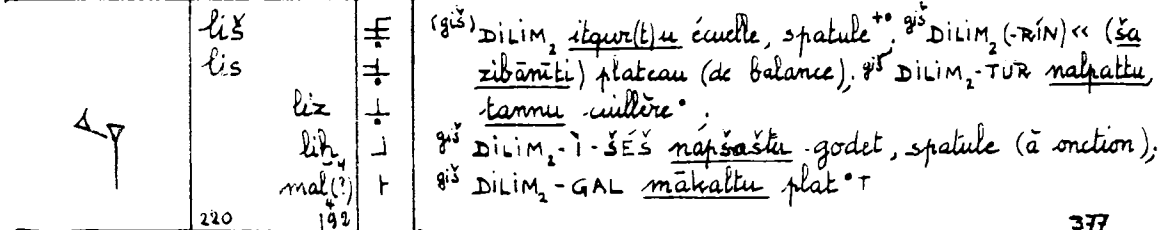 liš (giš)DILIM₂ itqur(t)u écuelle, spatule⁺•, gišDILIM₂(-RÍN)<< (ša
lis zibānīti) plateau (de balance); giš DILIM₂-TUR nalpattu,
liz tannu cuillère•;
lih₄ giš DILIM₂-Ì-ŠÉŠ napšaštu godet, spatule (à onction);
mal₄(?) giš DILIM₂-GAL mākaltu plat•
220 192 377